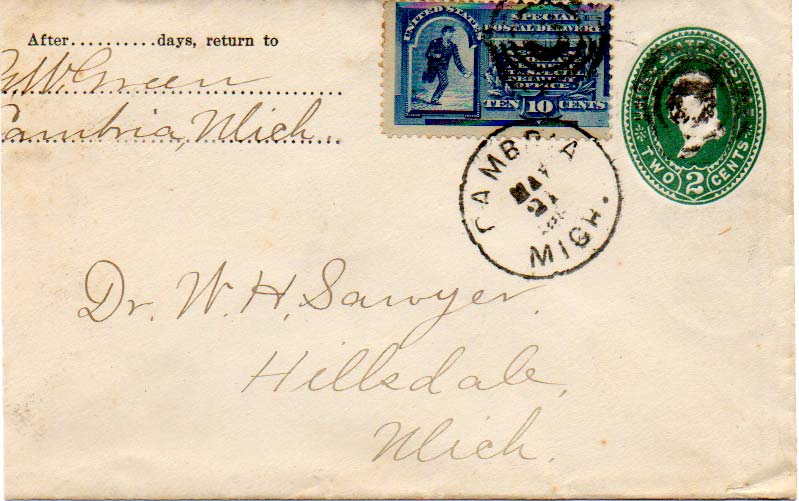 After..........days, return to
G.W. Green
Cambria, Mich.
UNITED STATES
SPECIAL
POSTAL DELIVERY
OFFICE.
TEN 10 CENTS
UNITED STATES POSTAGE
TWO 2 CENTS
CAMBRIA
MAY
21
MICH.
Dr. W. H. Sawyer.
Hillsdale,
Mich.